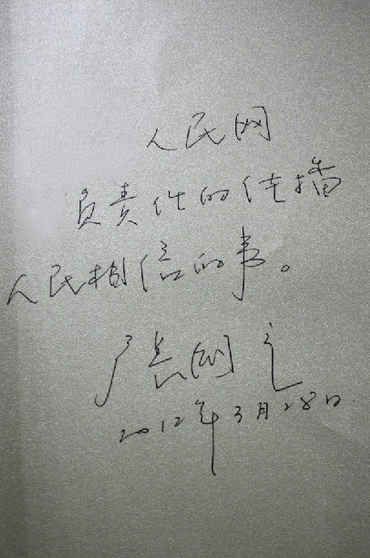 人民网
负责任的传播
人民相信的事。
2012年3月28日